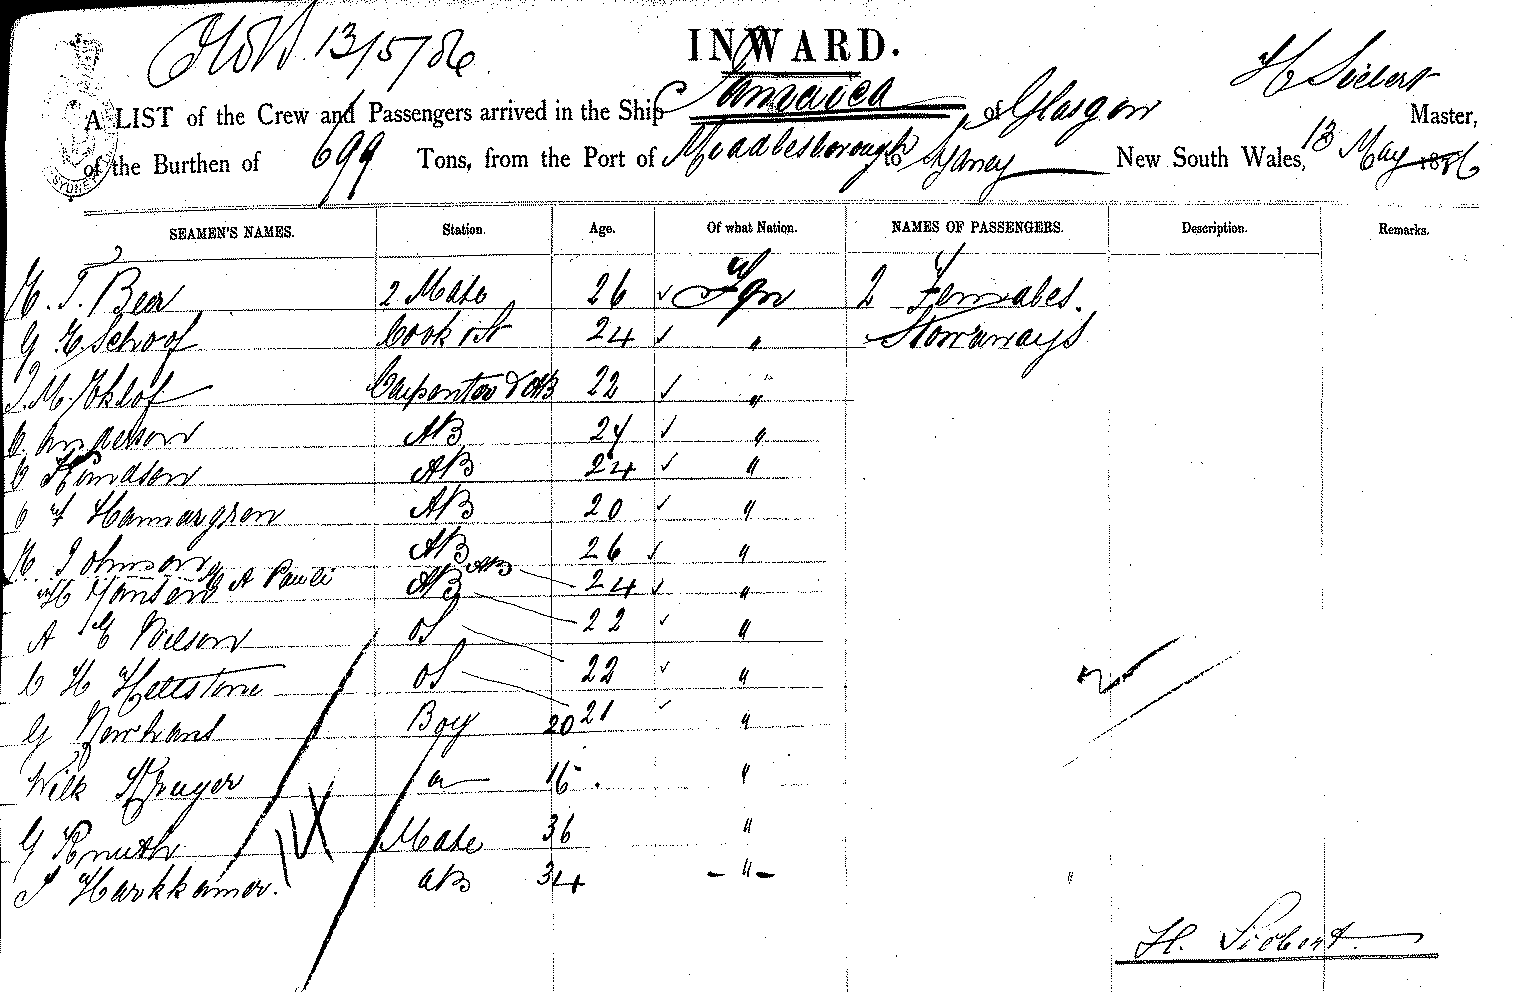 13/5/86
INWARD.
H Siebert
A LIST of the Crew and Passengers arrived in the Ship Jamaica of Glasgow Master,
of the Burthen of 699 Tons, from the Port of Middlesborough to Sydney New South Wales, 13 May 1886
SEAMEN'S NAMES. Station. Age. Of what Nation. NAMES OF PASSENGERS. Description. Remarks.
H. T. Beer 2 Mate 26 ✓ Fgn 2 Females.
G Eschoof Cook & St 24 ✓ " Stowaways
J. M. Eklof Carpenter & AB 22 ✓ "
C Anderson AB 24 ✓ "
C Knudson AB 24 ✓ "
C F Hammargren AB 20 ✓ "
H Johnson AB 26 ✓ "
H Jansen H A Pauli AB AB 24 ✓ "
A E Nilson OS 22 ✓ "
C H Hellstone OS 22 ✓ "
G Newhans Boy 20 21 ✓ "
Wilh Kruger 16 "
G Knuth Mate 36 "
J Harkkamer. AB 34 - " -
H. Siebert